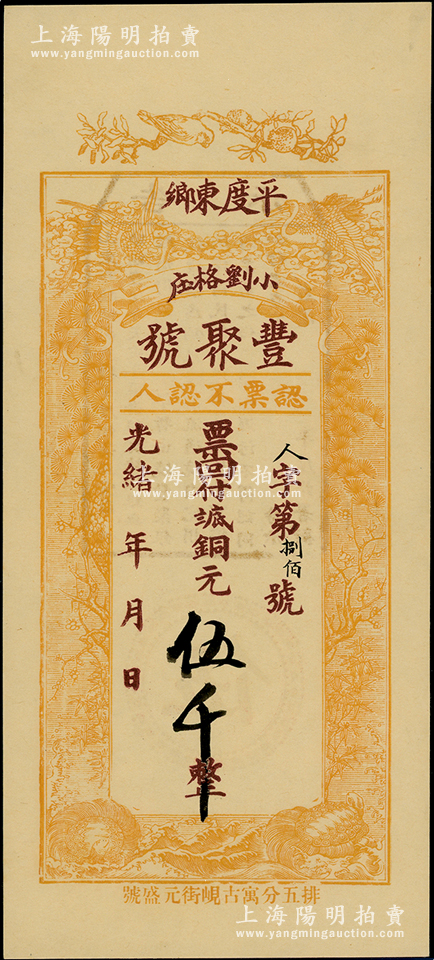 上海陽明拍賣
www.yangmingauction.com
平度東鄉
小劉格庄
豐聚號
認票不認人
人字第捌佰號
票
銅元伍千整
光緒 年 月 日
上海陽明拍賣
www.yangmingauction.com
排五分寓古峴街元盛號
上海陽明拍賣
www.yangmingauction.com